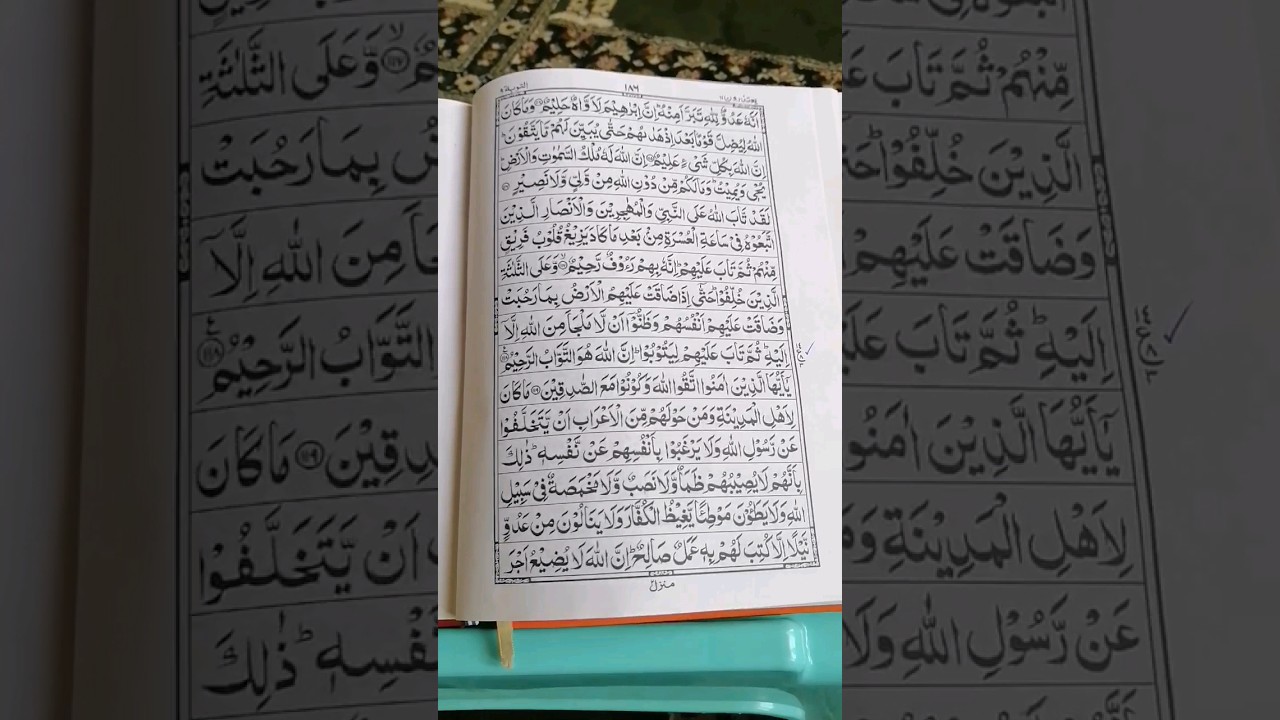 التوبة ٩
١٨٦
يعتذرون ١١
اَنَّهٗ عَدُوٌّ لِّلّٰهِ تَبَرَّاَ مِنْهُ ؕ اِنَّ اِبْرٰهِيْمَ لَاَوَّاهٌ حَلِيْمٌ ﴿۱۱۴﴾ وَمَا كَانَ
اللّٰهُ لِيُضِلَّ قَوْمًۢا بَعْدَ اِذْ هَدٰىهُمْ حَتّٰى يُبَيِّنَ لَهُمْ مَّا يَتَّقُوْنَ ؕ
اِنَّ اللّٰهَ بِكُلِّ شَىْءٍ عَلِيْمٌ ﴿۱۱۵﴾ اِنَّ اللّٰهَ لَهٗ مُلْكُ السَّمٰوٰتِ وَالْاَرْضِ ؕ
يُحْىٖ وَيُمِيْتُ ؕ وَمَا لَكُمْ مِّنْ دُوْنِ اللّٰهِ مِنْ وَّلِىٍّ وَّلَا نَصِيْرٍ ﴿۱۱۶﴾
لَقَدْ تَّابَ اللّٰهُ عَلَى النَّبِىِّ وَالْمُهٰجِرِيْنَ وَالْاَنْصَارِ الَّذِيْنَ
اتَّبَعُوْهُ فِىْ سَاعَةِ الْعُسْرَةِ مِنْۢ بَعْدِ مَا كَادَ يَزِيْغُ قُلُوْبُ فَرِيْقٍ
مِّنْهُمْ ثُمَّ تَابَ عَلَيْهِمْ ؕ اِنَّهٗ بِهِمْ رَءُوْفٌ رَّحِيْمٌ ﴿۱۱۷﴾ وَّعَلَى الثَّلٰثَةِ
الَّذِيْنَ خُلِّفُوْا ؕ حَتّٰٓى اِذَا ضَاقَتْ عَلَيْهِمُ الْاَرْضُ بِمَا رَحُبَتْ
وَضَاقَتْ عَلَيْهِمْ اَنْفُسُهُمْ وَظَنُّوْٓا اَنْ لَّا مَلْجَاَ مِنَ اللّٰهِ اِلَّآ
اِلَيْهِ ؕ ثُمَّ تَابَ عَلَيْهِمْ لِيَتُوْبُوْا ؕ اِنَّ اللّٰهَ هُوَ التَّوَّابُ الرَّحِيْمُ ﴿۱۱۸﴾
يٰٓاَيُّهَا الَّذِيْنَ اٰمَنُوا اتَّقُوا اللّٰهَ وَكُوْنُوْا مَعَ الصّٰدِقِيْنَ ﴿۱۱۹﴾ مَا كَانَ
لِاَهْلِ الْمَدِيْنَةِ وَمَنْ حَوْلَهُمْ مِّنَ الْاَعْرَابِ اَنْ يَّتَخَلَّفُوْا
عَنْ رَّسُوْلِ اللّٰهِ وَلَا يَرْغَبُوْا بِاَنْفُسِهِمْ عَنْ نَّفْسِهٖ ؕ ذٰلِكَ
بِاَنَّهُمْ لَا يُصِيْبُهُمْ ظَمَاٌ وَّلَا نَصَبٌ وَّلَا مَخْمَصَةٌ فِىْ سَبِيْلِ
اللّٰهِ وَلَا يَطَـُٔوْنَ مَوْطِئًا يَّغِيْظُ الْكُفَّارَ وَلَا يَنَالُوْنَ مِنْ عَدُوٍّ
نَّيْلًا اِلَّا كُتِبَ لَهُمْ بِهٖ عَمَلٌ صَالِحٌ ؕ اِنَّ اللّٰهَ لَا يُضِيْعُ اَجْرَ
منزل ٢